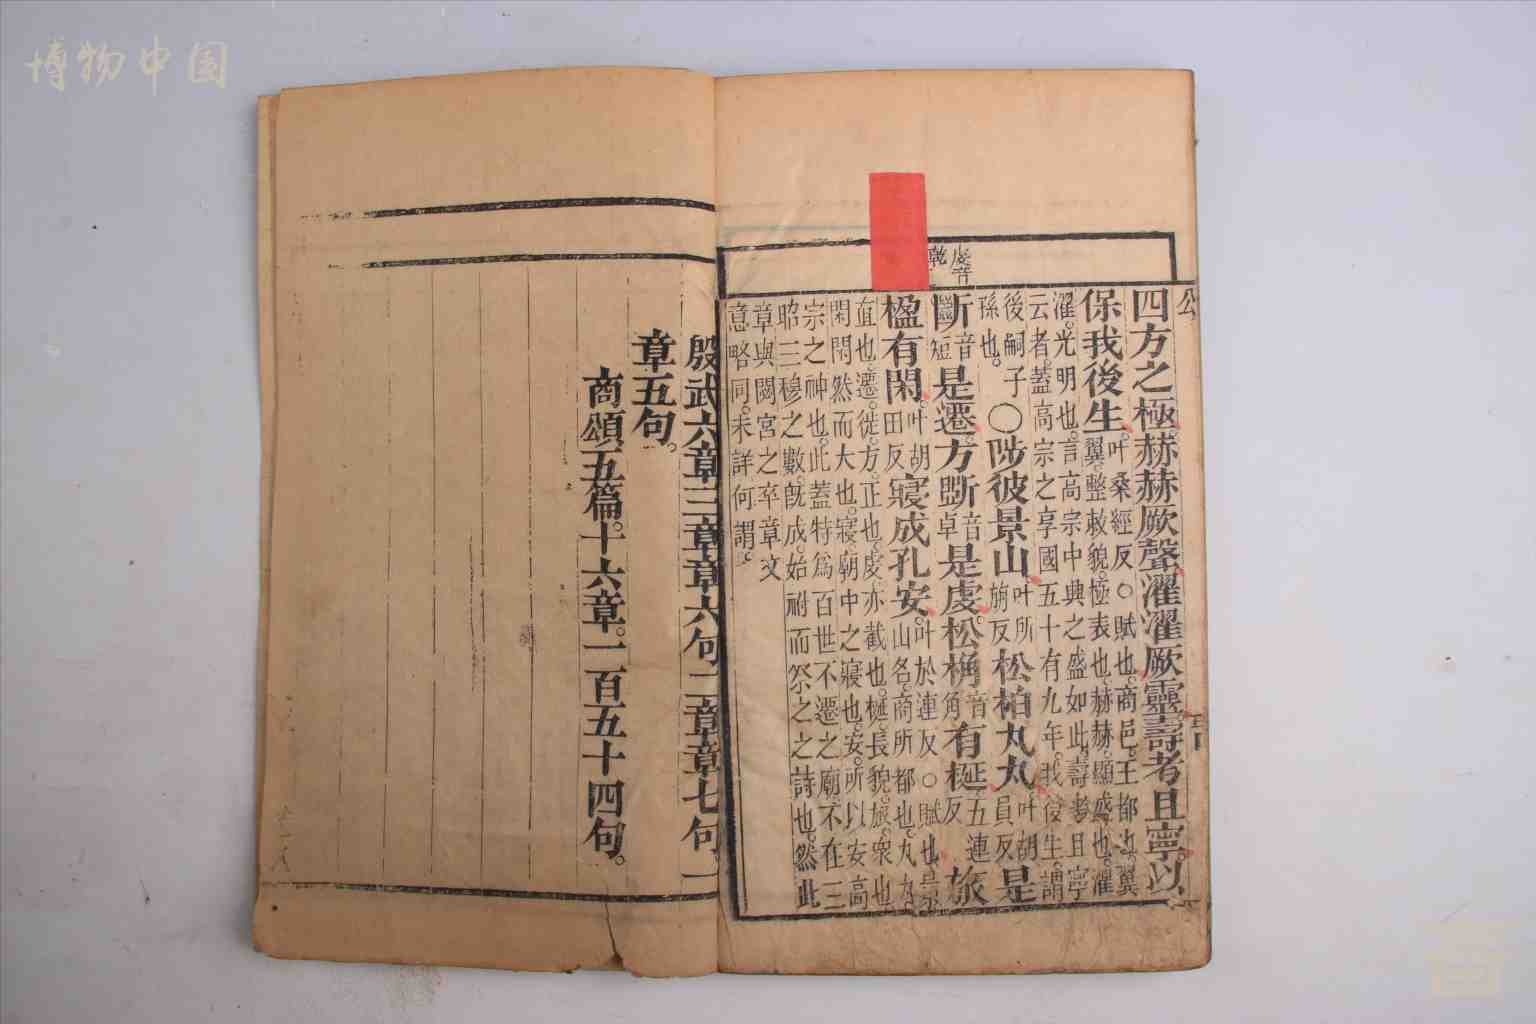 博物中国
虔音
乾
四方之極赫赫厥聲濯濯厥靈壽考且寧以
保我後生叶桑經反○賦也商邑王都也翼
翼整敕貌極表也赫赫顯盛也濯
濯光明也言高宗中興之盛如此壽考且寧
云者蓋高宗之享國五十有九年我後生謂
後嗣子
孫也○陟彼景山叶所旃反松柏丸丸叶胡員反是
斷音短是遷方斲音卓是虔松桷音角有梴丑連反旅
楹有閑叶胡田反寢成孔安叶於連反○賦也景
山名商所都也丸丸
直也遷徙方正也虔亦截也梴長貌旅衆也
閑閑然而大也寢廟中之寢也安所以安高
宗之神也此蓋特為百世不遷之廟不在三
昭三穆之數既成始祔而祭之之詩也然此
章與閟宮之卒章文
意略同未詳何謂
殷武六章三章章六句二章章七句一
章五句
商頌五篇十六章一百五十四句